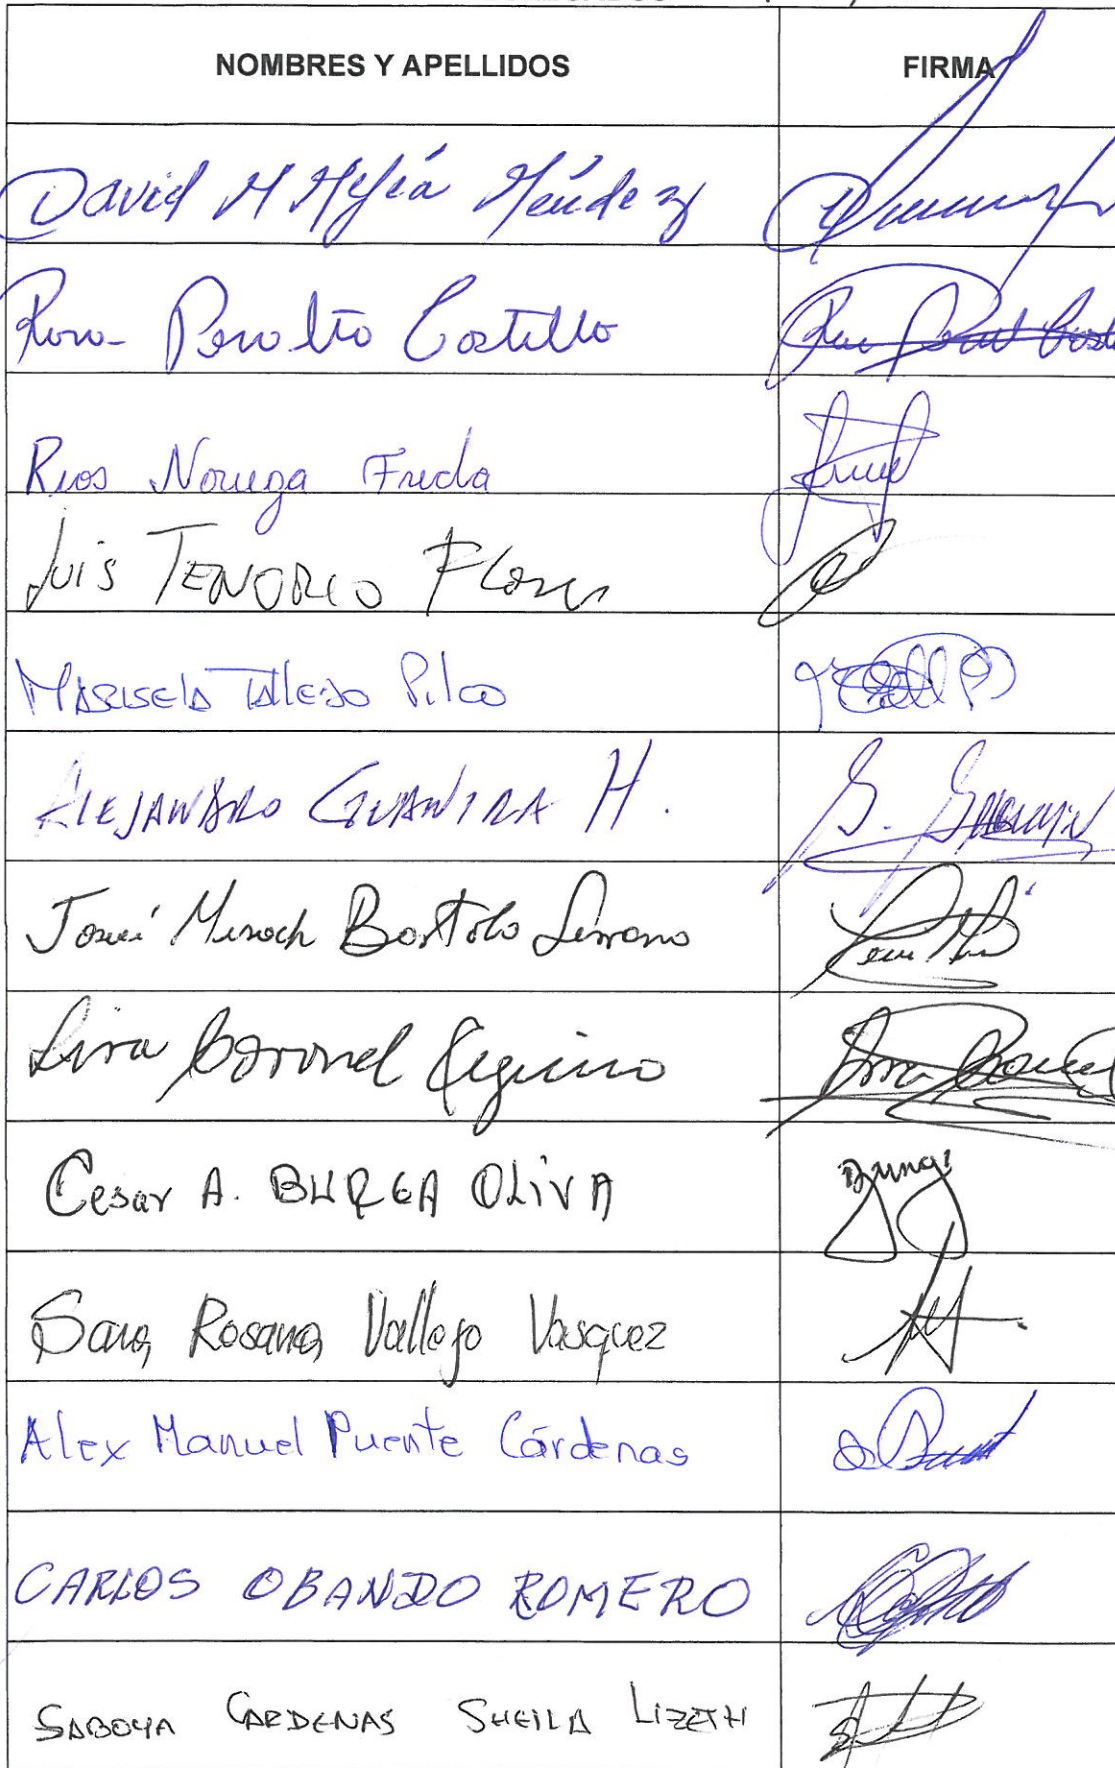 NOMBRES Y APELLIDOS FIRMA
David M Mejía Méndez
Rosa Peralta Castillo
Rios Noriega Freda
Luis TENORIO Flores
MARISELA Talledo Pilco
ALEJANDRO GUANIRA H.
Josué Misach Bartolo Serrano
Lira Coronel
Cesar A. BURGA OLIVA
Sara Rosana Vallejo Vasquez
Alex Manuel Puente Cárdenas
CARLOS OBANDO ROMERO
SABOYA CARDENAS SHEILA LIZETH